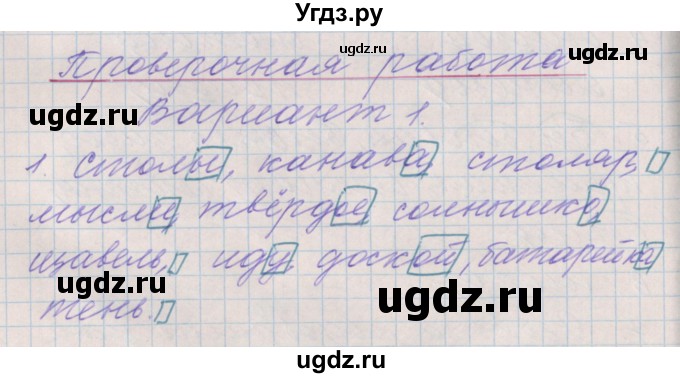 Угдз.ру
ugdz.ru
Проверочная работа
ugdz.ru ugdz.ru
Вариант 1.
ugdz.ru
1. столы, канава, столяр,
мысли, твёрдое, солнышко,
щавель, иду, доской, батарейка,
ugdz.ru ugdz.ru
тень.
ugdz.ru